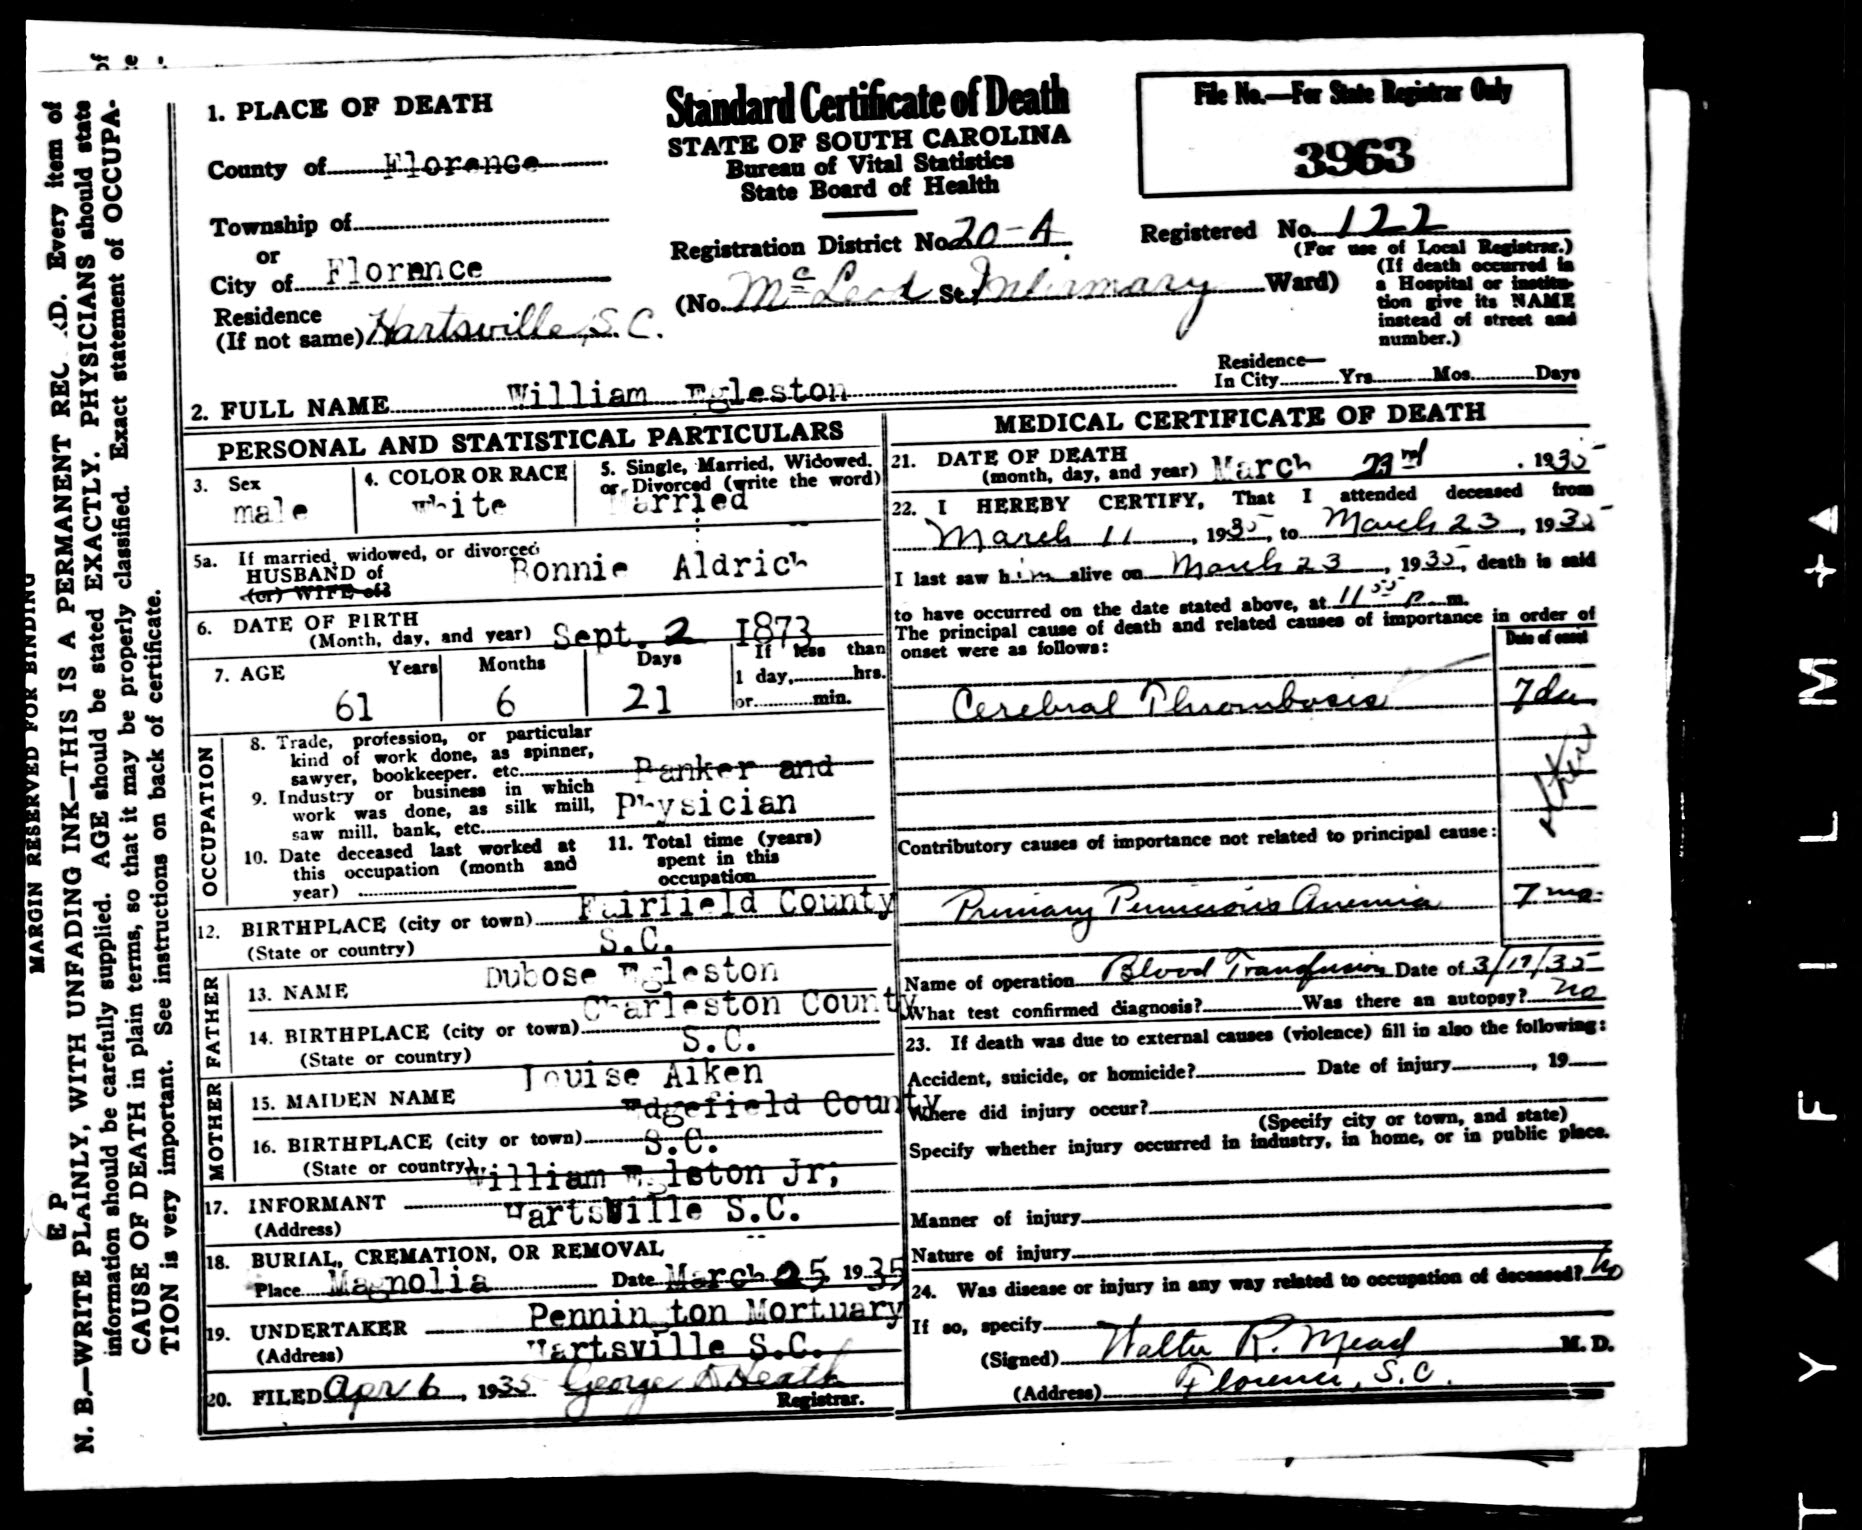 1. PLACE OF DEATH
County of Florence
Township of
or
City of Florence
Residence
(If not same) Hartsville, S.C.
Standard Certificate of Death
STATE OF SOUTH CAROLINA
Bureau of Vital Statistics
State Board of Health
Registration District No. 20-A
(No. McLeod St. Infirmary Ward)
File No.—For State Registrar Only
3963
Registered No. 122
(For use of Local Registrar.)
(If death occurred in
a Hospital or institu-
tion give its NAME
instead of street and
number.)
Residence—
In City Yrs. Mos. Days
2. FULL NAME William Egleston
PERSONAL AND STATISTICAL PARTICULARS
3. Sex
male
4. COLOR OR RACE
white
5. Single, Married, Widowed,
or Divorced (write the word)
Married
5a. If married, widowed, or divorced
HUSBAND of
(or) WIFE of
Bonnie Aldrich
6. DATE OF BIRTH
(Month, day, and year) Sept. 2 1873
7. AGE Years Months Days
61 6 21
If less than
1 day, hrs.
or min.
OCCUPATION
8. Trade, profession, or particular
kind of work done, as spinner,
sawyer, bookkeeper, etc. Banker and
9. Industry or business in which
work was done, as silk mill,
saw mill, bank, etc. Physician
10. Date deceased last worked at
this occupation (month and
year)
11. Total time (years)
spent in this
occupation
12. BIRTHPLACE (city or town) Fairfield County
(State or country) S.C.
FATHER
13. NAME Dubose Egleston
14. BIRTHPLACE (city or town) Charleston County
(State or country) S.C.
MOTHER
15. MAIDEN NAME Louise Aiken
16. BIRTHPLACE (city or town) Edgefield County
(State or country) S.C.
17. INFORMANT William Egleton Jr;
(Address) Hartsville S.C.
18. BURIAL, CREMATION, OR REMOVAL
Place Magnolia Date March 25 1935
19. UNDERTAKER Pennington Mortuary
(Address) Hartsville S.C.
20. FILED Apr 6, 1935 George D Heath
Registrar.
MEDICAL CERTIFICATE OF DEATH
21. DATE OF DEATH
(month, day, and year) March 23rd, 1935
22. I HEREBY CERTIFY, That I attended deceased from
March 11, 1935, to March 23, 1935
I last saw him alive on March 23, 1935, death is said
to have occurred on the date stated above, at 11 55 P. m.
The principal cause of death and related causes of importance in order of
onset were as follows:
Date of onset
Cerebral Thrombosis 7 da
Contributory causes of importance not related to principal cause:
Primary Pernicious Anemia 7 mo.
Name of operation Blood Transfusion Date of 3/19/35
What test confirmed diagnosis? Was there an autopsy? no
23. If death was due to external causes (violence) fill in also the following:
Accident, suicide, or homicide? Date of injury, 19
Where did injury occur?
(Specify city or town, and state)
Specify whether injury occurred in industry, in home, or in public place.
Manner of injury
Nature of injury
24. Was disease or injury in any way related to occupation of deceased? No
If so, specify
(Signed) Walter R. Mead M. D.
(Address) Florence, S.C.
MARGIN RESERVED FOR BINDING
N. B.—WRITE PLAINLY, WITH UNFADING INK—THIS IS A PERMANENT RECORD. Every item of
information should be carefully supplied. AGE should be stated EXACTLY. PHYSICIANS should state
CAUSE OF DEATH in plain terms, so that it may be properly classified. Exact statement of OCCUPA-
TION is very important. See instructions on back of certificate.